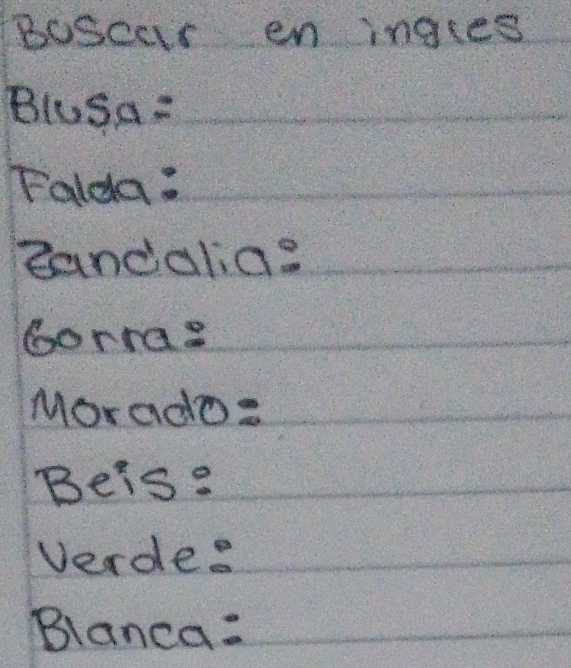 Boscar en ingles
Blusa:
Falda:
Zandalia:
Gorra:
Morado:
Beis:
Verde:
Blanca: